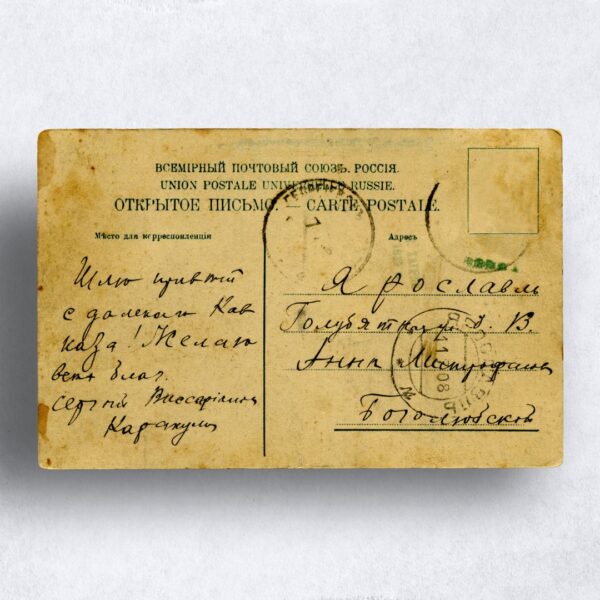 ВСЕМІРНЫЙ ПОЧТОВЫЙ СОЮЗЪ. РОССІЯ.
UNION POSTALE UNIVERSELLE RUSSIE.
ОТКРЫТОЕ ПИСЬМО. — CARTE POSTALE.
Мѣсто для корреспонденціи
Адресъ
Шлю привѣт
с далекаго Кав
каза! Желаю
всех благ.
Сергѣй Виссаріонич
Каракулин
Ярославль
Голубятная ул. д. В.
Анне Митрофановне
Боголюбской
11 08